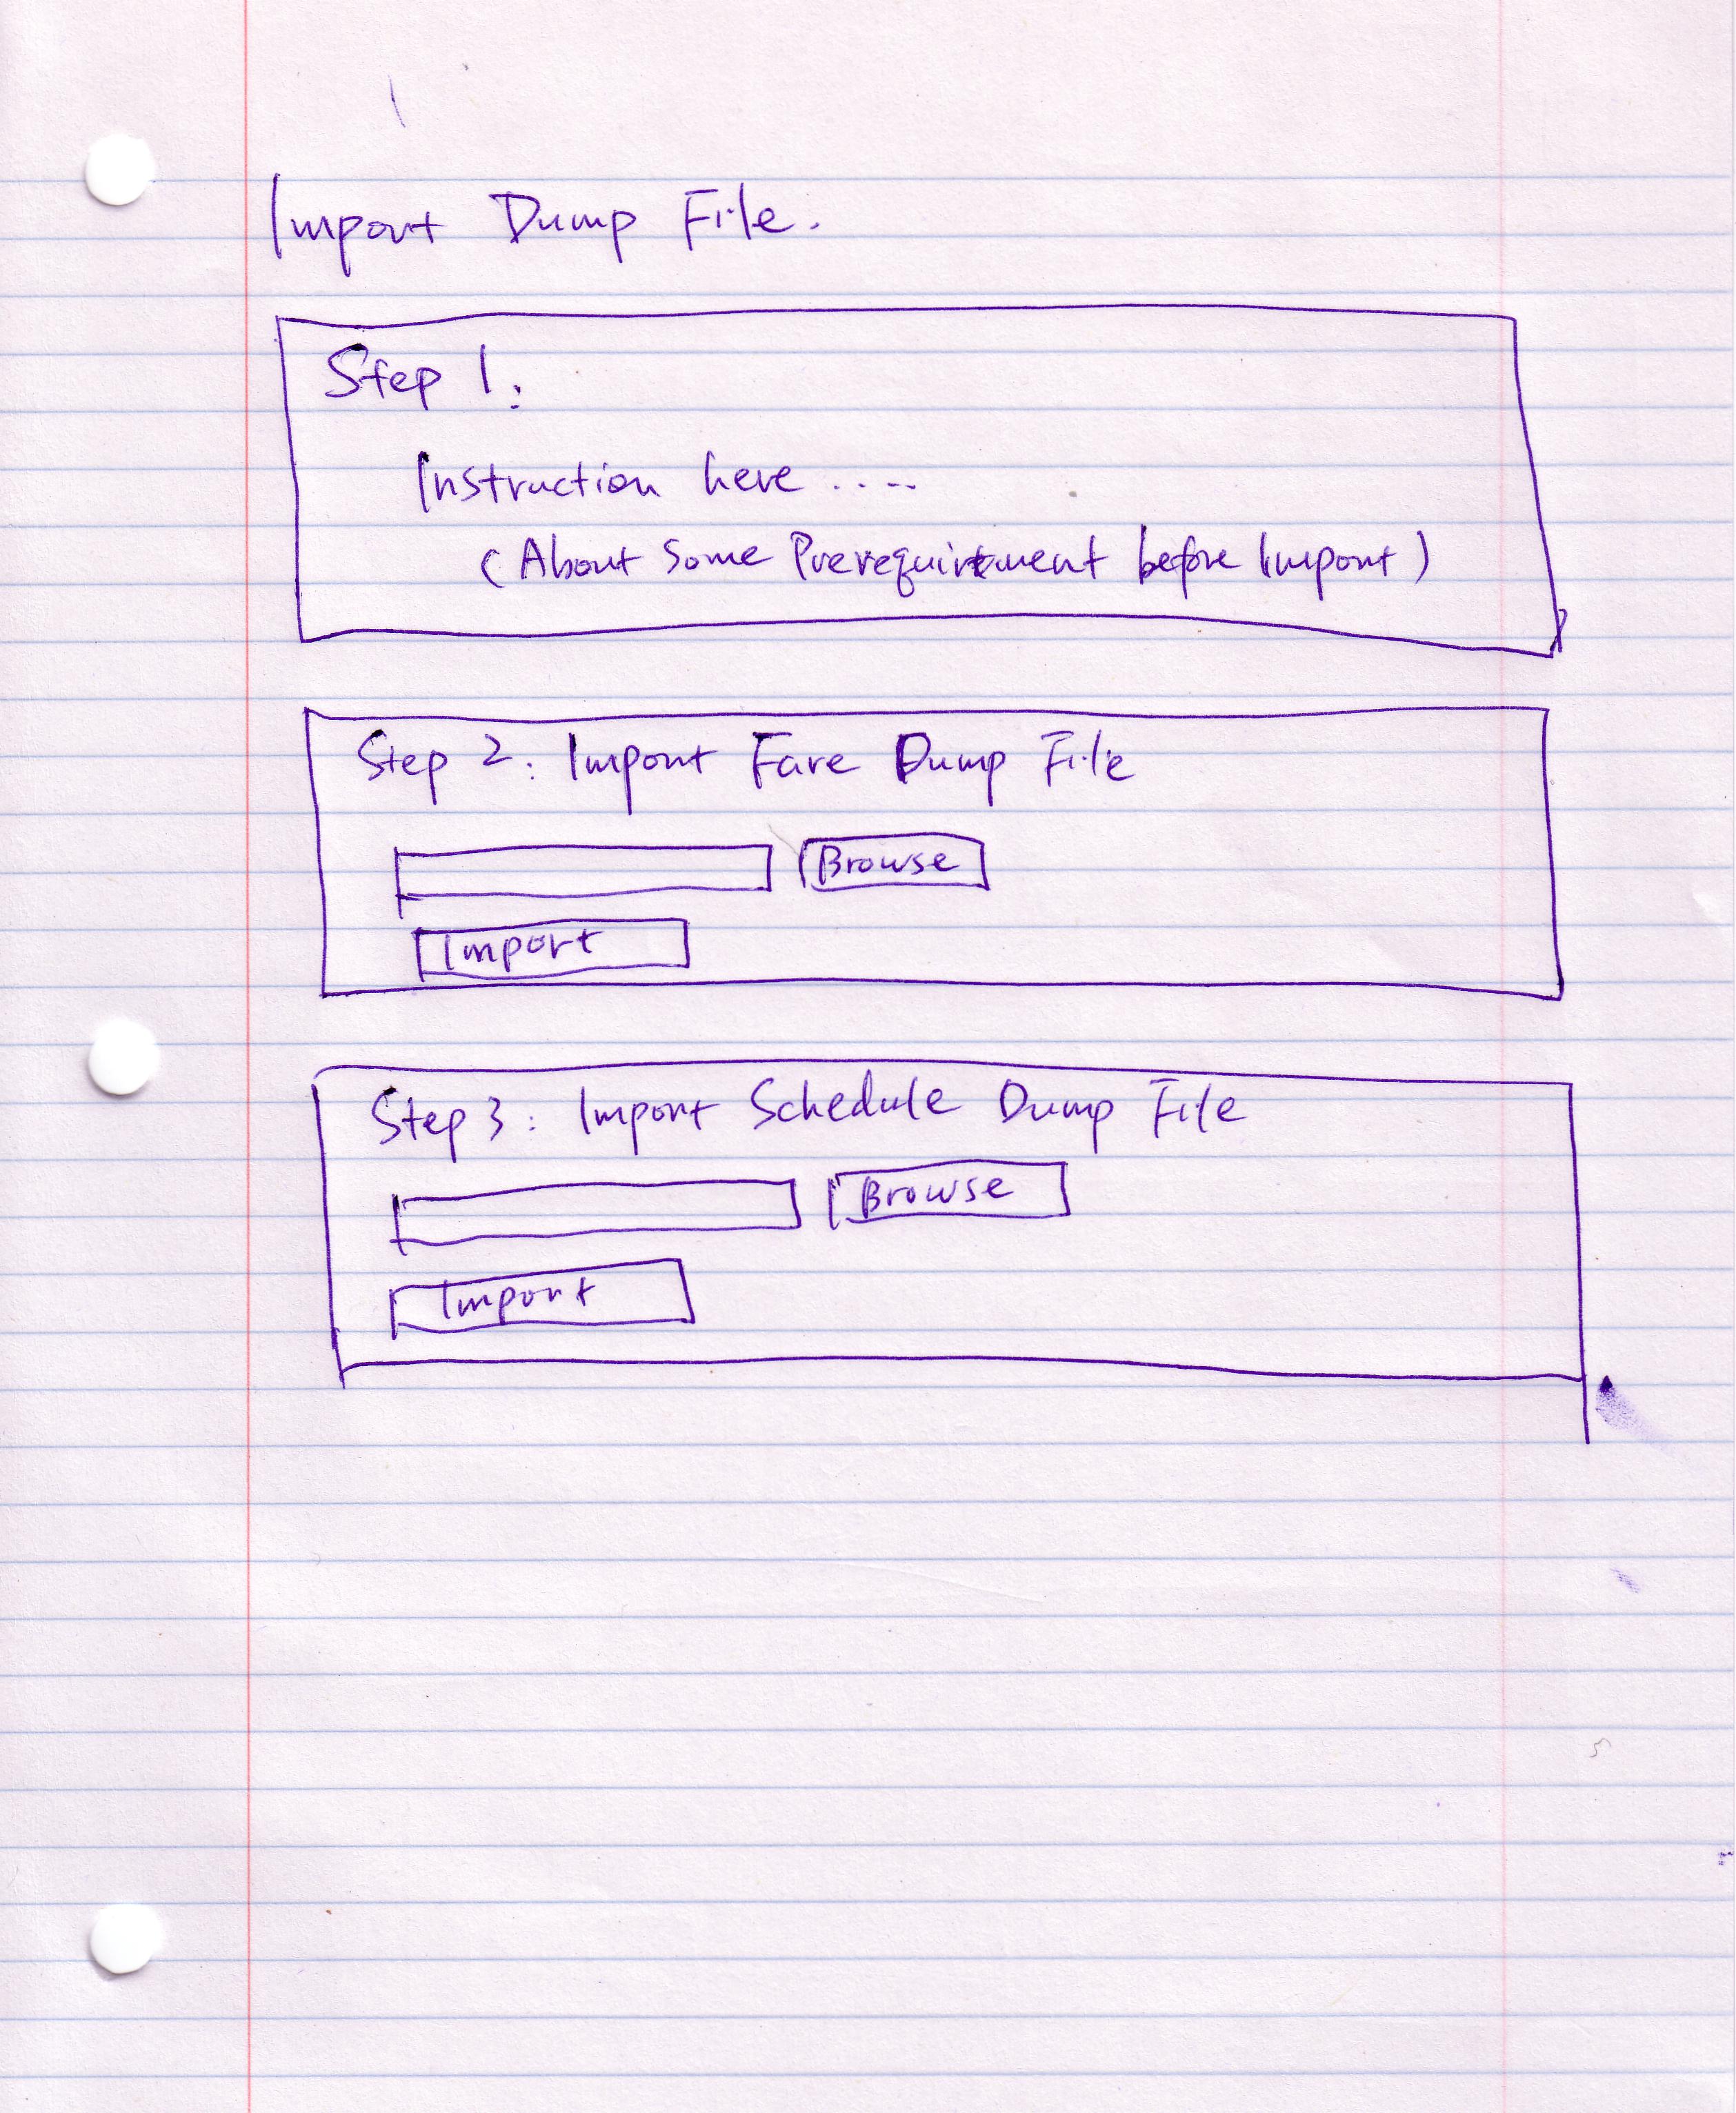 Import Dump File.
Step 1:
Instruction here ....
(About Some Prerequirement before Import)
Step 2: Import Fare Dump File
Browse
Import
Step 3: Import Schedule Dump File
Browse
Import